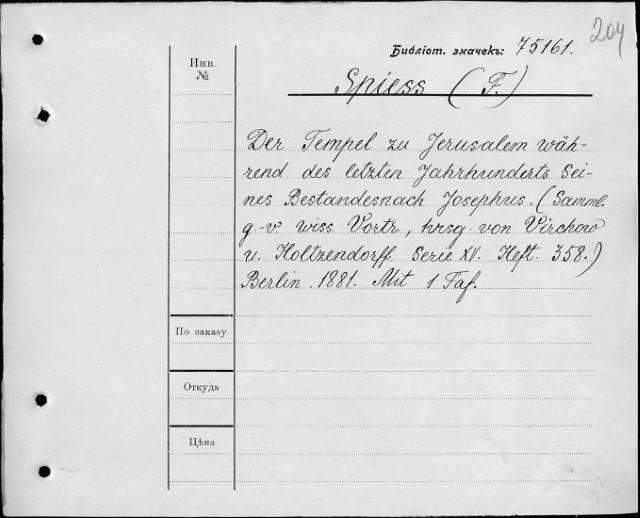 204
Библіот. значекъ: 75161.
Инв.
№
Spiess (F.)
Der Tempel zu Jerusalem wäh-
rend des letzten Jahrhunderts sei-
nes Bestandesnach Josephus. (Samml.
g.-v. wiss. Vortr., hrsg. von Virchow
u. Holtzendorff. Serie XV. Heft. 358.)
Berlin. 1881. Mit 1 Taf.
По заказу
Откуда
Цѣна